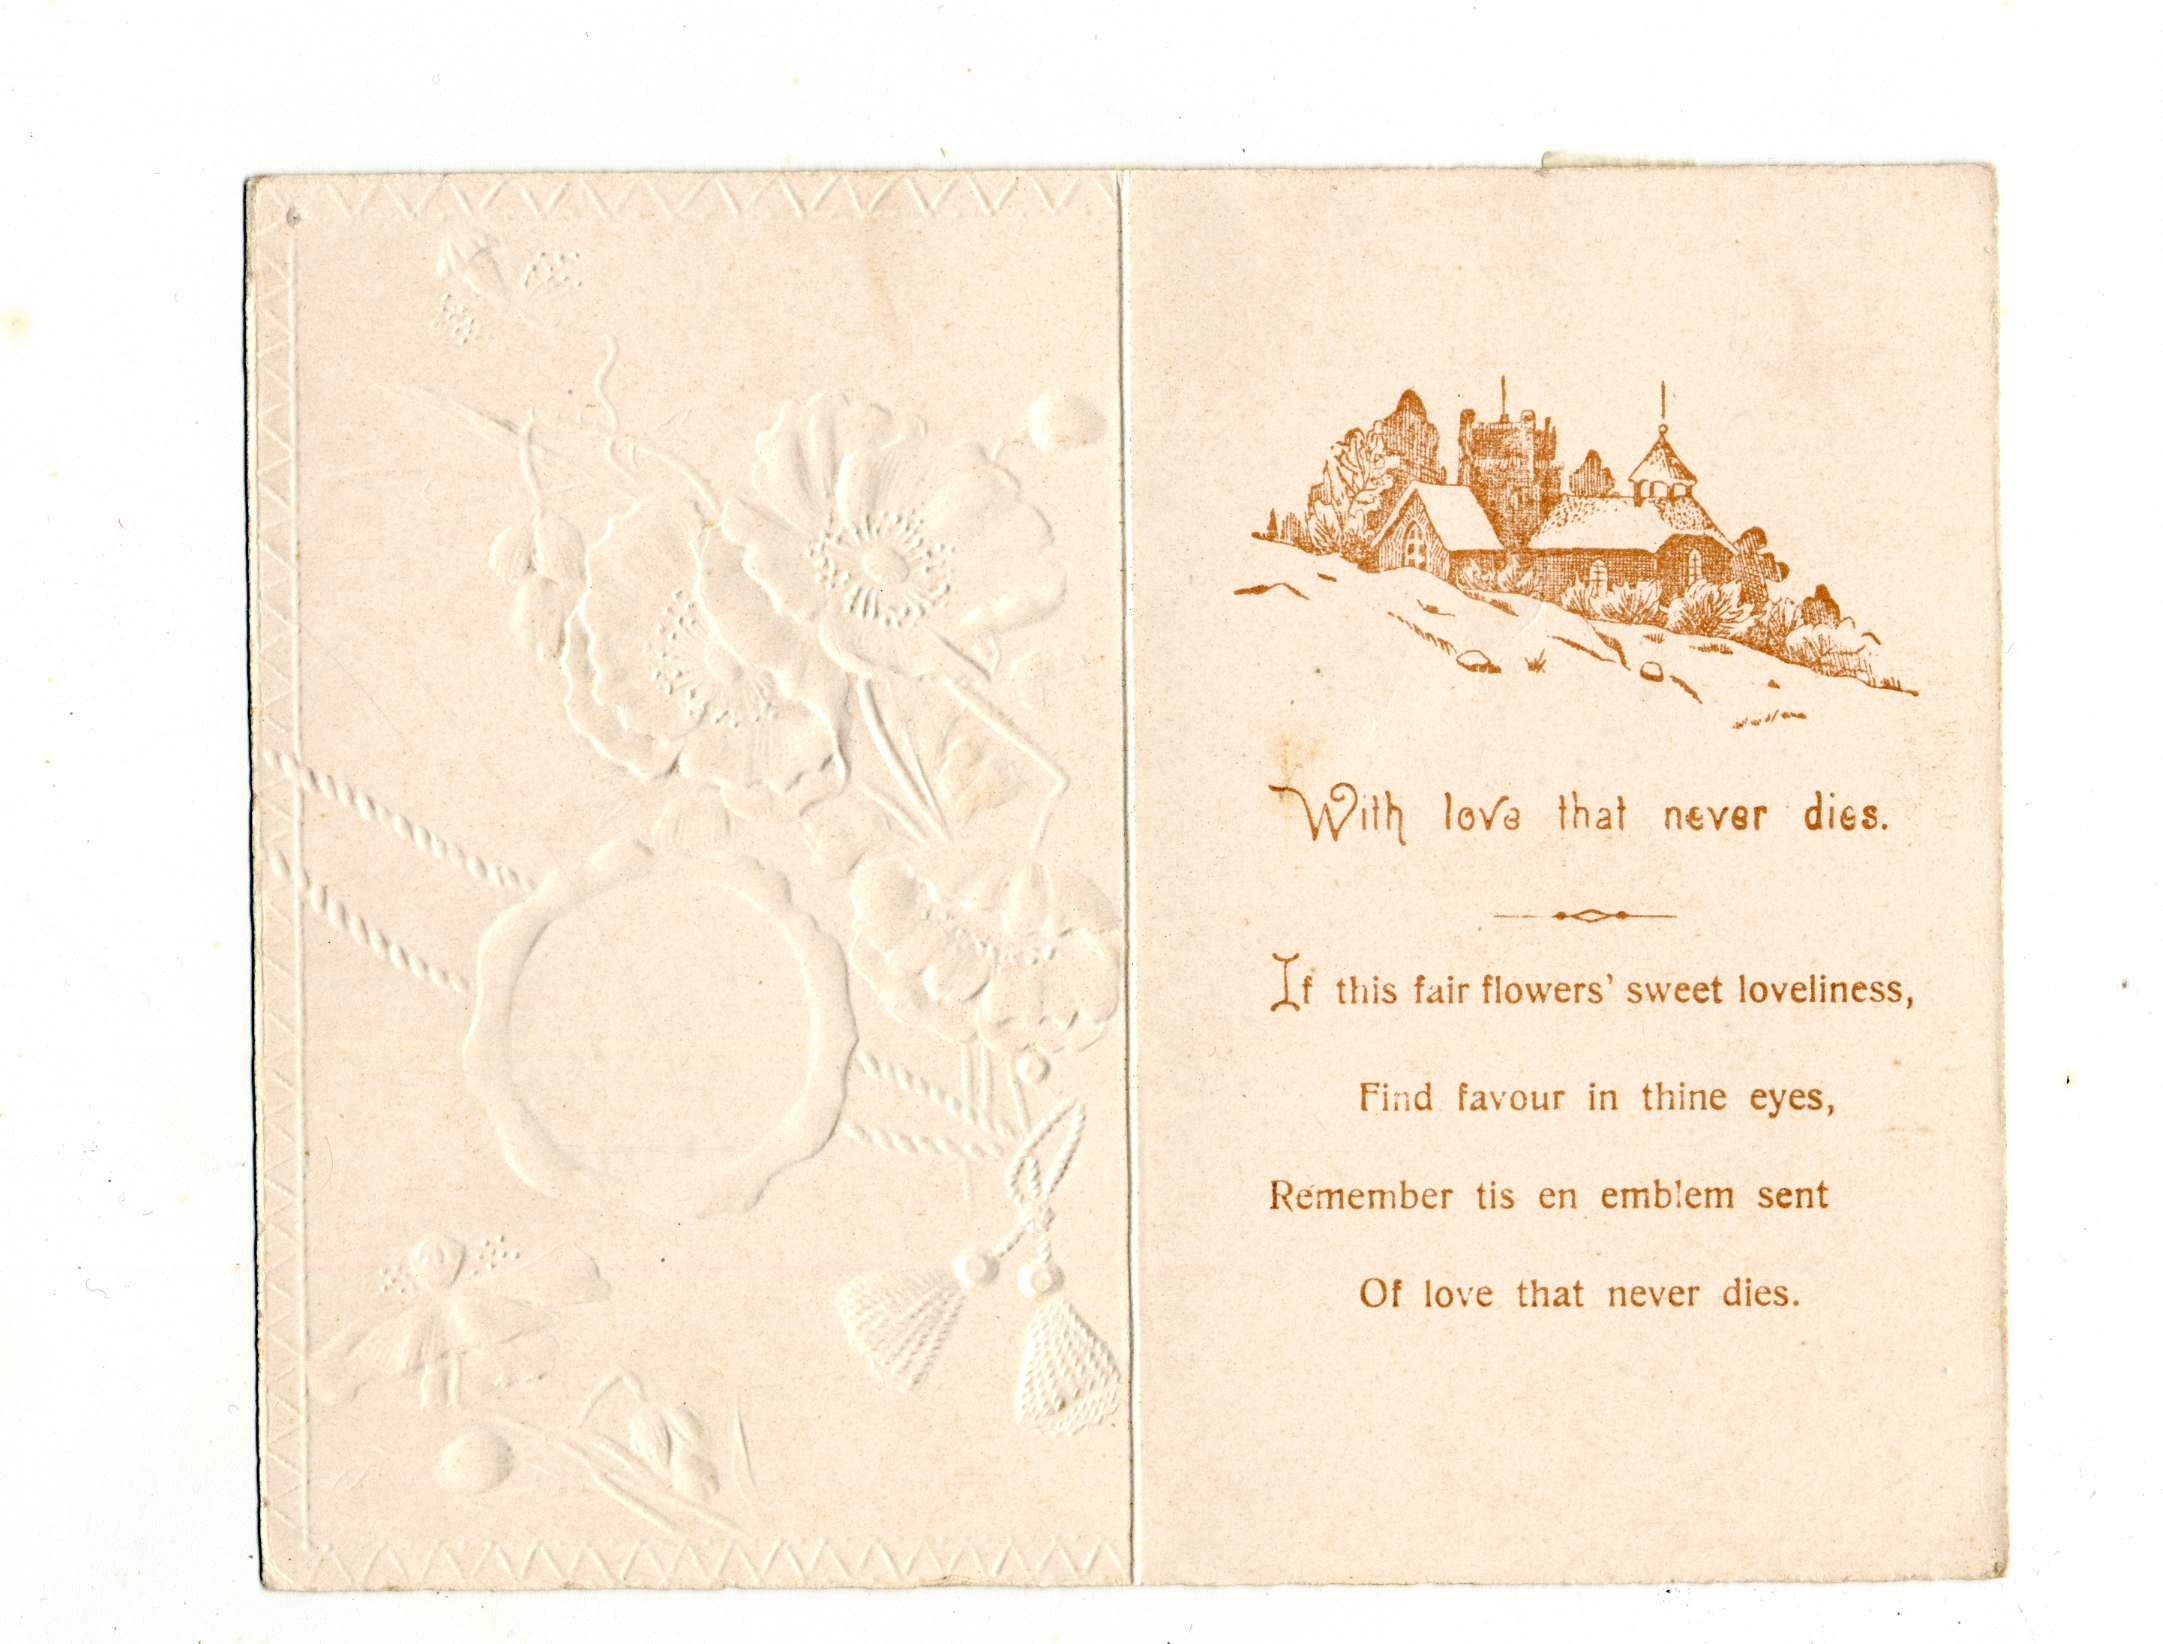 With love that never dies.
If this fair flowers' sweet loveliness,
Find favour in thine eyes,
Remember tis en emblem sent
Of love that never dies.